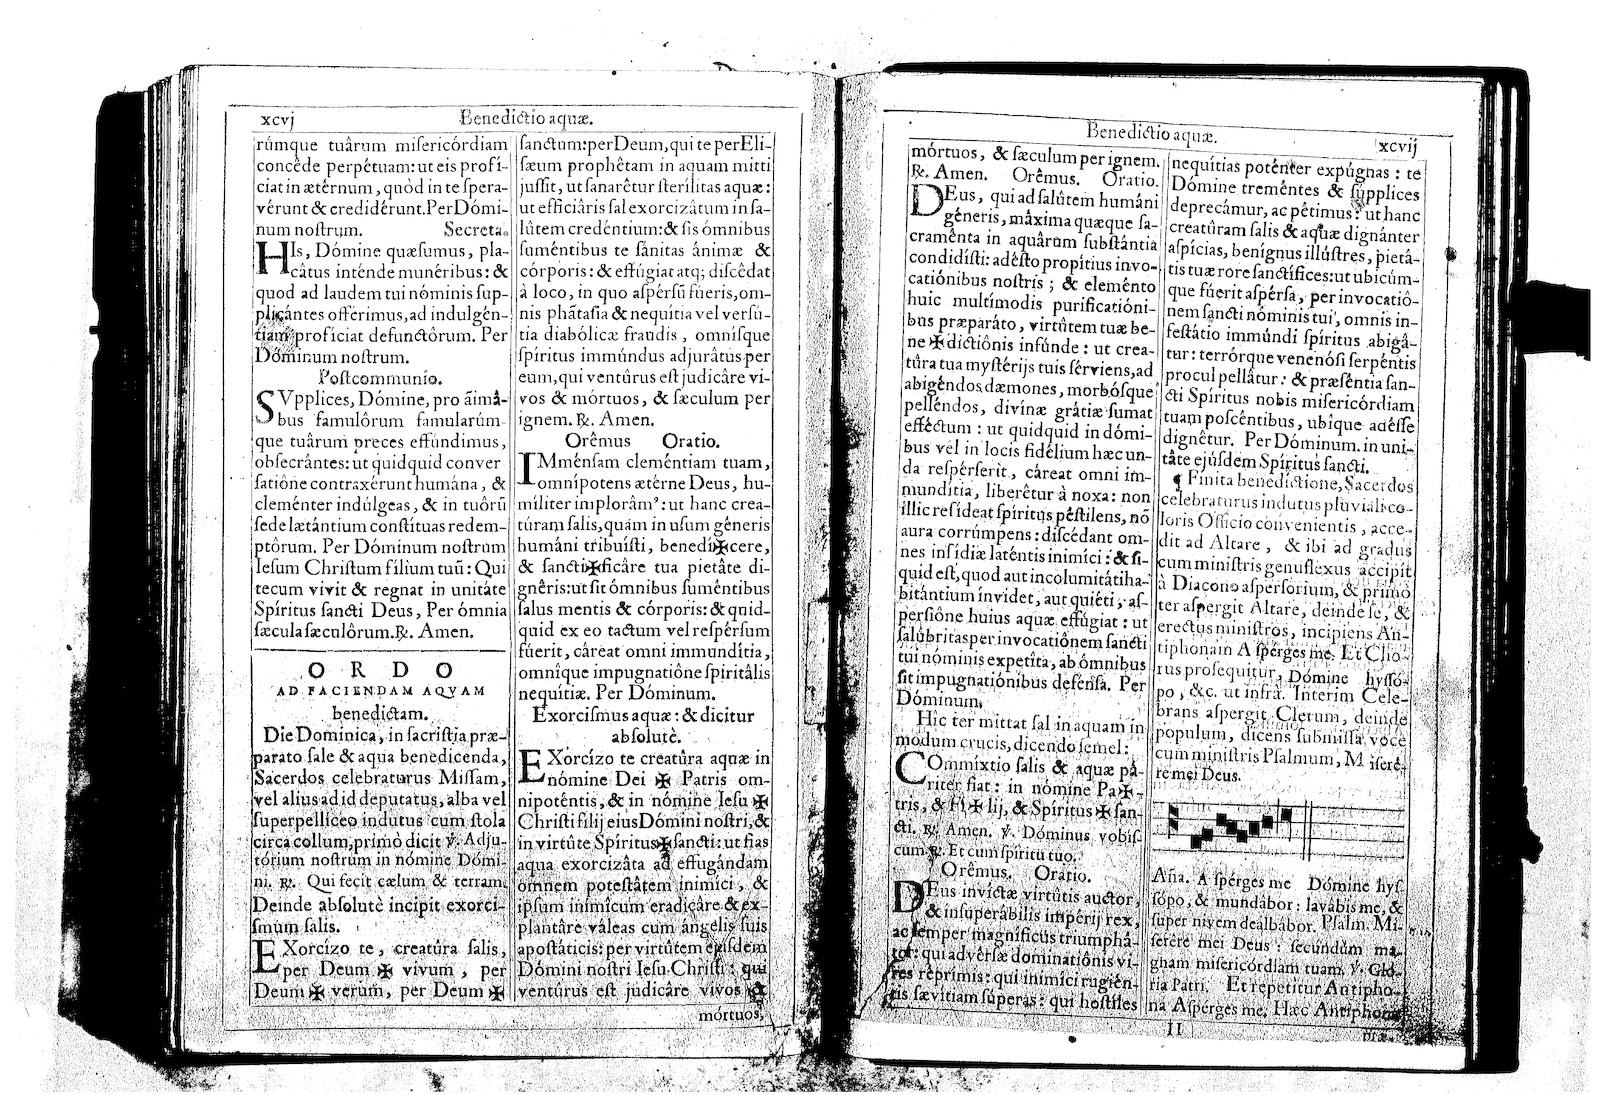 xcvj
Benedictio aquæ.
rúmque tuârum misericórdiam
concéde perpétuam: ut eis profí-
ciat in ætérnum, quòd in te spera-
vérunt & credidérunt. Per Dómi-
num nostrum. Secreta.
HIs, Dómine quæsumus, pla-
câtus inténde munéribus: &
quod ad laudem tui nóminis sup-
plicántes offerimus, ad indulgén-
tiam proficiat defunctôrum. Per
Dóminum nostrum.
Postcommunio.
SVpplices, Dómine, pro ãimâ-
bus famulôrum famularúm-
que tuârum preces effúndimus,
obsecrántes: ut quidquid conver
satiône contraxérunt humána, &
cleménter indúlgeas, & in tuôrũ
sede lætántium constítuas redem-
ptôrum. Per Dóminum nostrum
Iesum Christum fílium tuũ: Qui
tecum vivit & regnat in unitáte
Spíritus sancti Deus, Per ómnia
sæcula sæculôrum. ℟. Amen.
ORDO
AD FACIENDAM AQVAM
benedictam.
Die Dominica, in sacristia præ-
parato sale & aqua benedicenda,
Sacerdos celebraturus Missam,
vel alius ad id deputatus, alba vel
superpelliceo indutus cum stola
circa collum, primò dicit ℣. Adju-
tórium nostrum in nómine Dómi-
ni. ℟. Qui fecit cælum & terram.
Deinde absolutè incipit exorci-
smum salis.
EXorcízo te, creatûra salis,
per Deum ✠ vivum, per
Deum ✠ verum, per Deum ✠
sanctum: per Deum, qui te per Eli-
sæum prophêtam in aquam mitti
jussit, ut sanarêtur sterilitas aquæ:
ut efficiâris sal exorcizâtum in sa-
lûtem credéntium: & sis ómnibus
suméntibus te sánitas ánimæ &
córporis: & effúgiat atq; discêdat
à loco, in quo aspérsũ fúeris, om-
nis phãtasia & nequítia vel versú-
tia diabólicæ fraudis, omnísque
spíritus immúndus adjurâtus per
eum, qui ventûrus est judicâre vi-
vos & mórtuos, & sæculum per
ignem. ℟. Amen.
Orêmus Oratio.
IMménsam cleméntiam tuam,
omnípotens ætérne Deus, hu-
míliter implorâmꝰ: ut hanc crea-
túram salis, quam in usum géneris
humáni tribuísti, benedí✠cere,
& sancti✠ficâre tua pietâte di-
gnêris: ut sit ómnibus suméntibus
salus mentis & córporis: & quid-
quid ex eo tactum vel respérsum
fúerit, câreat omni immundítia,
omnique impugnatiône spiritâlis
nequítiæ. Per Dóminum.
Exorcismus aquæ: & dicitur
absolutè.
EXorcízo te creatûra aquæ in
nómine Dei ✠ Patris om-
nipoténtis, & in nómine Iesu ✠
Christi filij eius Dómini nostri, &
in virtûte Spíritus ✠ sancti: ut fias
aqua exorcizâta ad effugándam
omnem potestâtem inimíci, &
ipsum inimícum eradicâre & ex-
plantâre váleas cum ángelis suis
apostáticis: per virtûtem ejúsdem
Dómini nostri Iesu Christi: qui
ventúrus est judicâre vivos &
mórtuos,
Benedictio aquæ.
xcvij
mórtuos, & sæculum per ignem.
℟. Amen. Orêmus. Oratio.
DEus, qui ad salûtem humáni
géneris, máxima quæque sa-
craménta in aquârum substántia
condidísti: adésto propítius invo-
catiónibus nostris; & eleménto
huic multímodis purificatióni-
bus præparáto, virtûtem tuæ be-
ne ✠ dictiônis infúnde: ut crea-
tûra tua mystérijs tuis sérviens, ad
abigéndos dæmones, morbósque
pelléndos, divínæ grátiæ sumat
efféctum: ut quidquid in dómi-
bus vel in locis fidélium hæc un-
da respérserit, câreat omni im-
mundítia, liberêtur à noxa: non
illic resídeat spíritus péstilens, nõ
aura corrúmpens: discédant om-
nes insídiæ laténtis inimíci: & si-
quid est, quod aut incolumitáti ha-
bitántium invidet, aut quiéti, as-
persiône huius aquæ effúgiat: ut
salúbritas per invocatiônem sancti
tui nóminis expetíta, ab ómnibus
sit impugnatiónibus defénsa. Per
Dóminum.
Hic ter mittat sal in aquam in
modum crucis, dicendo semel:
COmmíxtio salis & aquæ pá-
riter fiat: in nómine Pa✠-
tris, & Fi✠lij, & Spíritus ✠ san-
cti. ℟. Amen. ℣. Dóminus vobis
cum. ℟. Et cum spíritu tuo.
Orêmus. Oratio.
DEus invíctæ virtûtis auctor,
& insuperábilis impérij rex,
ac semper magníficus triumphâ-
tor: qui advérsæ dominatiônis vi-
res réprimis: qui inimíci rugién-
tis sævítiam súperas: qui hostíles
nequítias poténter expúgnas: te
Dómine treméntes & súpplices
deprecámur, ac pétimus: ut hanc
creatûram salis & aquæ dignánter
aspícias, benígnus illústres, pietâ-
tis tuæ rore sanctífices: ut ubicúm-
que fúerit aspérsa, per invocatiô-
nem sancti nóminis tui, omnis in-
festátio immúndi spíritus abigâ-
tur: terrórque venenósi serpéntis
procul pellâtur: & præséntia san-
cti Spíritus nobis misericórdiam
tuam poscéntibus, ubíque adésse
dignêtur. Per Dóminum. in uni-
tâte ejúsdem Spíritus sancti.
¶ Finita benedictione, Sacerdos
celebraturus indutus pluviali co-
loris Officio convenientis, acce-
dit ad Altare, & ibi ad gradus
cum ministris genuflexus accipit
à Diacono aspersorium, & primò
ter aspergit Altare, deinde se, &
erectus ministros, incipiens An-
tiphonam Aspérges me. Et Cho-
rus prosequitur, Dómine hyssó-
po, &c. ut infrà. Interim Cele-
brans aspergit Clerum, deinde
populum, dicens submissa voce
cum ministris Psalmum, Miseré-
re mei Deus.
Aña. Aspérges me Dómine hys-
sópo, & mundábor: lavábis me, &
super nivem dealbábor. Psalm. Mi-
serére mei Deus: secundúm ma-
gnam misericórdiam tuam. ℣. Gló-
ria Patri. Et repetitur Antipho-
na Aspérges me. Hæc Antiphona
II
præ-